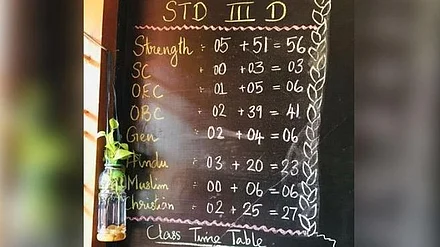 STD III D
Strength ÷ 05 + 51 = 56
SC ÷ 00 + 03 = 03
OEC ÷ 01 + 05 = 06
OBC ÷ 02 + 39 = 41
Gen ÷ 02 + 04 = 06
Hindu ÷ 03 + 20 = 23
Muslim ÷ 00 + 06 = 06
Christian ÷ 02 + 25 = 27
Class Time Table